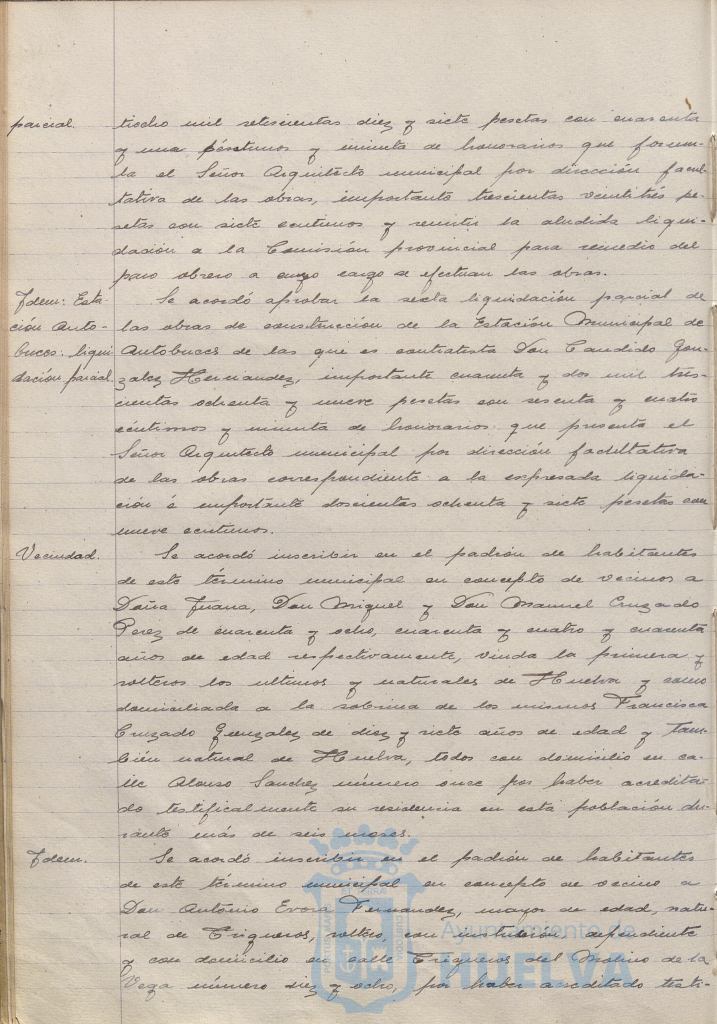 parcial. tiocho mil setecientas diez y siete pesetas con cuarenta
y una céntimos y minuta de honorarios que formu-
la el Señor Arquitecto municipal por dirección facul-
tativa de las obras, importante trescientas veintitrés pe-
setas con siete centimos y remitir la aludida liqui-
dación a la Comisión provincial para remedio del
paro obrero a cuyo cargo se efectuan las obras.
Idem: Esta- Se acordó aprobar la sexta liquidación parcial de
ción Auto- las obras de construcción de la Estación Municipal de
buces: liqui Autobuces de las que es contratista Don Candido Gon-
dación parcial. zalez Hernandez, importante cuarenta y dos mil tres-
cientas ochenta y nueve pesetas con sesenta y cuatro
céntimos y minuta de honorarios que presenta el
Señor Arquitecto municipal por dirección facultativa
de las obras correspondiente a la expresada liquida-
ción é importante doscientas ochenta y siete pesetas con
nueve centimos.
Vecindad. Se acordó inscribir en el padrón de habitantes
de este término municipal en concepto de vecinos a
Doña Juana, Don Miguel y Don Manuel Cruzado
Perez de cuarenta y ocho, cuarenta y cuatro y cuarenta
años de edad respectivamente, viuda la primera y
solteros los ultimos y naturales de Huelva y como
domiciliada a la sobrina de los mismos Francisca
Cruzado Gonzalez de diez y siete años de edad y tam-
bién natural de Huelva, todos con domicilio en ca-
lle Alonso Sanchez número once por haber acredita-
do testificalmente su residencia en esta población du-
rante más de seis meses.
Idem. Se acordó inscribir en el padrón de habitantes
de este término municipal en concepto de vecino a
Don António Evora Fernandez, mayor de edad, natu-
ral de Trigueros, soltero, con instrucción, dependiente
y con domicilio en calle Trigueros del Molino de la
Vega número diez y ocho, por haber acreditado testi-
Ayuntamiento de
HUELVA